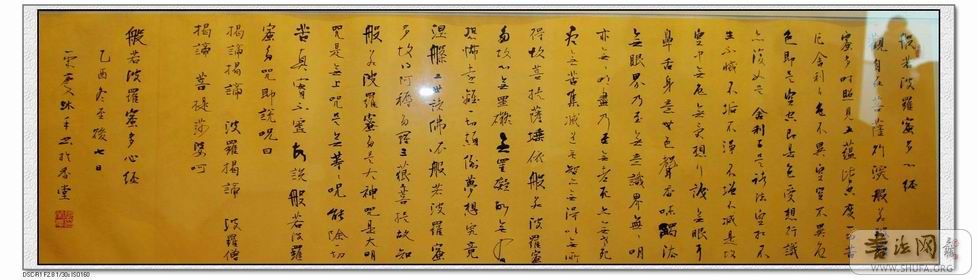 般若波羅蜜多心經
觀自在菩薩行深般若波羅
蜜多時照見五蘊皆空度一切苦
厄舍利子色不異空空不異色
色即是空空即是色受想行識
亦復如是舍利子是諸法空相不
生不滅不垢不淨不增不減是故
空中無色無受想行識無眼耳
鼻舌身意無色聲香味觸法
無眼界乃至無意識界無無明
亦無無明盡乃至無老死亦無老死
盡無苦集滅道無智亦無得以無所
得故菩提薩埵依般若波羅蜜
多故心無罣礙無罣礙故無有
恐怖遠離一切顛倒夢想究竟
涅槃三世諸佛依般若波羅蜜
多故得阿耨多羅三藐三菩提故知
般若波羅蜜多是大神咒是大明
咒是無上咒是無等等咒能除一切
苦真實不虛故說般若波羅
蜜多咒即說咒曰
揭諦揭諦 波羅揭諦 波羅僧
揭諦 菩提莎婆呵
般若波羅蜜多心經
乙酉冬至後七日
於香堂
书法网
WWW.SHUFA.ORG
DSC-R1 F2.8 1/30s ISO160